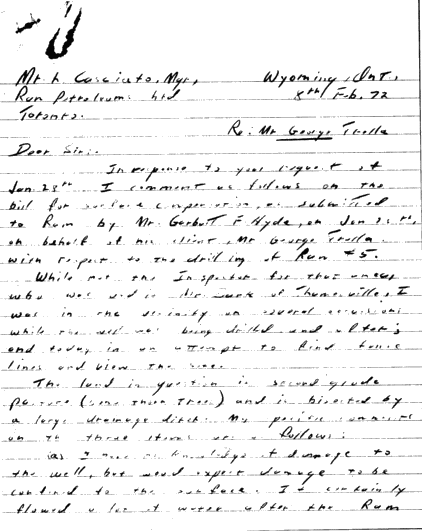 Mr. L. Casciato, Mgr., Wyoming, Ont.
Ram Petroleums Ltd 8th Feb. 72
Toronto.
Re: Mr George Trella
Dear Sir:
In response to your request of
Jan 28th I comment as follows on the
bill for surface compensation, as submitted
to Ram by Mr. Garbutt F Hyde, on Jan
on behalf of his client, Mr George Trella
with respect to the drilling of Ram #5.
While not the Inspector for that area,
who was of Thamesville, I
was in the vicinity on several occasions
while the well was being drilled and after;
and today in an attempt to find fence
lines and view the
The land in question is second grade
pasture ( ) and is bisected by
a large drainage ditch. My comments
on these items are as follows:
(a) I have no knowledge of damage to
the well, but would expect damage to be
confined to the surface. It certainly
flowed a lot of water after the Ram